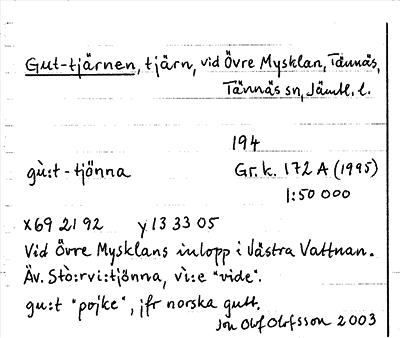 Gut-tjärnen, tjärn, vid Övre Mysklan, Tännäs,
Tännäs sn, Jämtl. l.
194
gù:t - tjönna
Gr. k. 172 A (1995)
1:50 000
x69 21 92 y13 33 05
Vid Övre Mysklans inlopp i Västra Vattnan.
Äv. Stò:rvi:tjönna, vi:e "vide".
gu:t "pojke", jfr norska gutt.
Jon Olof Olofsson 2003